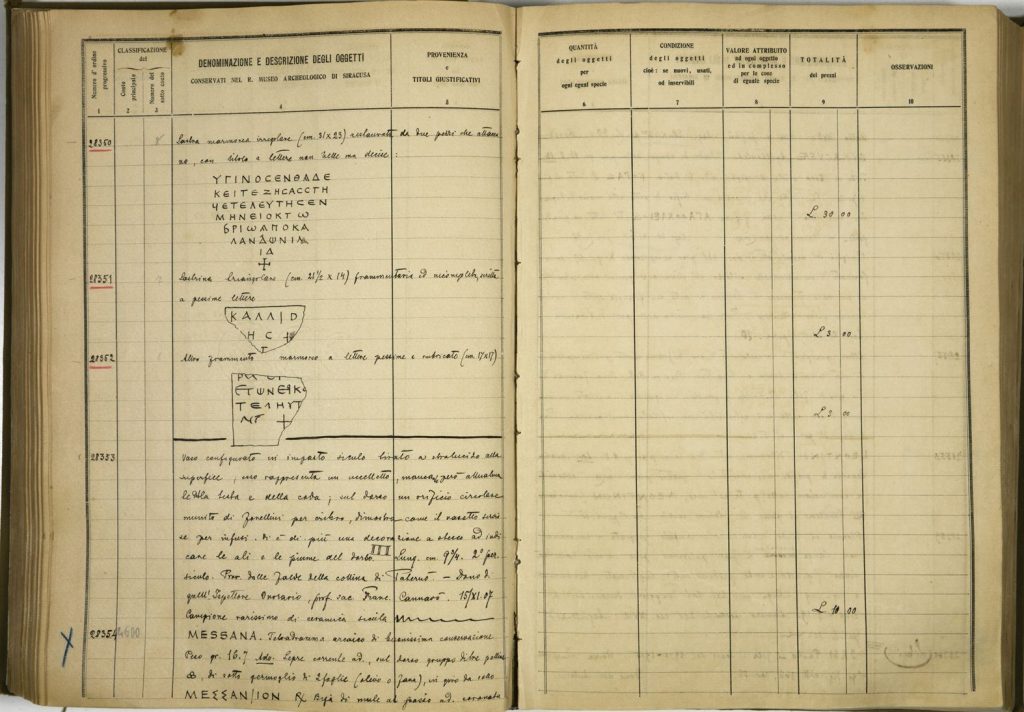 Numero d' ordine progressivo
CLASSIFICAZIONE del
Conto principale
Numero del sotto conto
DENOMINAZIONE E DESCRIZIONE DEGLI OGGETTI
CONSERVATI NEL R. MUSEO ARCHEOLOGICO DI SIRACUSA
PROVENIENZA
e
TITOLI GIUSTIFICATIVI
QUANTITÀ
degli oggetti
per
ogni egual specie
CONDIZIONE
degli oggetti
cioè: se nuovi, usati,
od inservibili
VALORE ATTRIBUITO
ad ogni oggetto
ed in complesso
per le cose
di eguale specie
TOTALITÀ
dei prezzi
OSSERVAZIONI
1 2 3 4 5 6 7 8 9 10
28350 Lastra marmorea irregolare (cm. 31×23) restaurata da due pezzi che attacca-
no, con titolo a lettere non belle ma decise:
ΥΓΙΝΟCΕΝΘΑΔΕ
ΚΕΙΤΕΖΗCΑCCΤΗ
ΕΤΕΛΕΥΤΗCΕΝ
ΜΗΝΕΙΟΚΤΩ
ΒΡΙΩΑΠΟΚΑ
ΛΑΝΔΩΝΙΑ
ΙΔ
L. 30 00
28351 Lastrina triangolare (cm. 21½ × 14) frammentaria ed incompleta, scritta
a pessime lettere
ΚΑΛΛΙ
ΗC
L. 3 00
28352 Altro frammento marmoreo a lettere pessime e rubricato (cm. 17×17)
ΕΤΩΝ
ΤΕΛΗΥΤ
L. 3 00
28353 Vaso configurato in impasto siculo tirato a stralucido alla
superficie, esso rappresenta un uccelletto, manca però attualmen
della testa e della coda; sul dorso un orificio circolare
munito di forellini per cribro, dimostra come il vasetto servis-
se per infusi. Vi è di più una decorazione a stecco ad indi-
care le ali e le piume del dorso. III Lung. cm. 9¾. 2° per.
siculo. Prov. dalle falde della collina di Paternò. — Dono di
quell' Ispettore Onorario, prof. sac. Franc. Cannarò. 15/XI.07
Campione rarissimo di ceramica sicula
L. 10 00
28354 MESSANA. Tetradramma arcaico di buonissima conservazione
Peso gr. 16.7 Ado. Lepre corrente ad., sul dorso gruppo di tre palline
, di sotto germoglio di 2 foglie (olivo o ), in giro da
ΜΕΣΣΑΝΙΟΝ R/ Biga di mule al passo ad. coronata